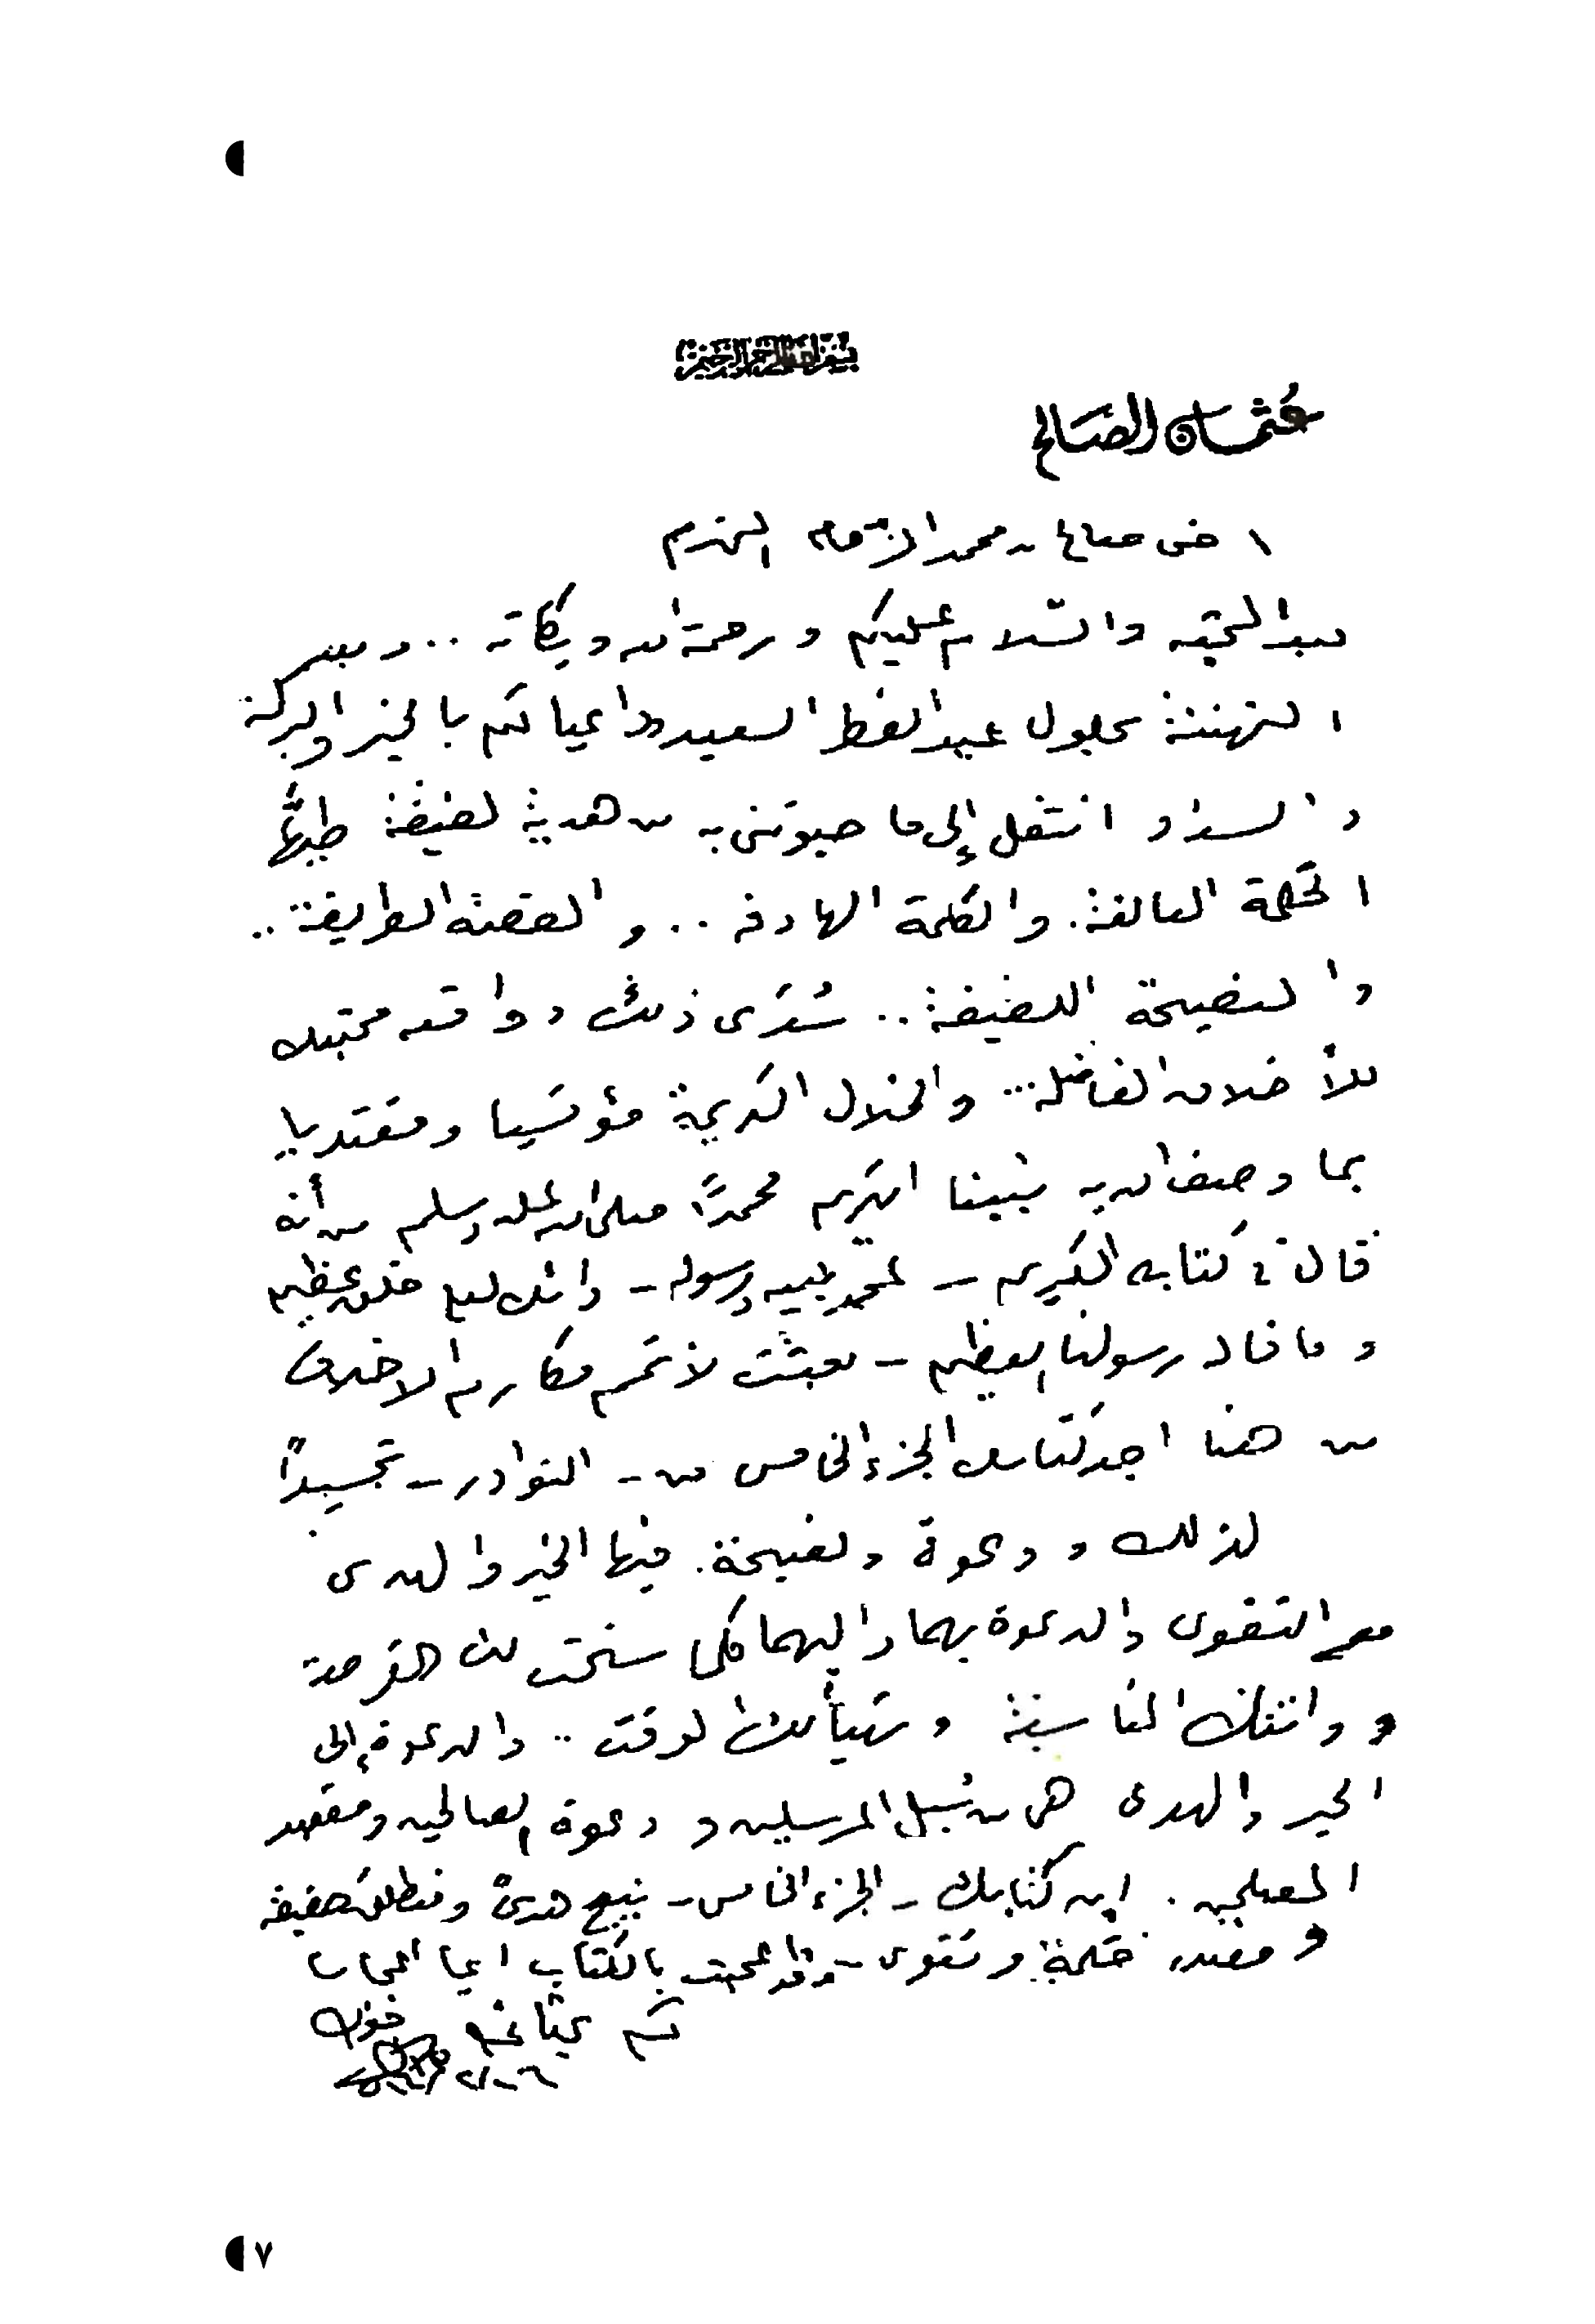 بسم الله الرحمن الرحيم
عثمان الصالح
اخى صالح بن محمد الزمام المحترم
بعد التحيه والسلام عليكم ورحمة الله وبركاته .. وبعد
التهنئة بحلول عيد الفطر السعيد داعيا لكم بالخير والبركة
والسداد انتقل إلى ما حبوتنى به من هدية لطيفة طيها
الحكمة البالغة. والكلمة الهادفه .. والقصة الطريفة ..
والنصيحة اللطيفة .. سُدَى ذلك محبتك
للأخلاق الفاضله ... والخلال الكريمة مؤتسيا ومقتديا
بما وصف الله به نبينا الكريم محمدًا صلى الله عليه وسلم من أنه
قال فى كتابه الكريم - عن نبيه ورسوله - وانك لعلى خلق عظيم
وما قال رسولنا العظيم - بعثت لأتمم مكارم الاخلاق
من هنا اجد كتابك الجزء الخامس من - النوادر - تجسيدًا
لذلك ودعوة ونصيحة. فيها الخير والهدى
مع التقوى والدعوة بهما واليهما كلما سنحت لك الفرصة
وواتتك المناسبة وتهيأ لك الوقت .. والدعوة إلى
الخير والهدى هى من سُبل المرسلين ودعوة الصالحين ومقصد
المصلحين . ان كتابك - الجزء الخامس - نبع هدىً ومنطلق حقيقة
ومصدر حكمة وتقوى - وقد اعجبت بالكتاب ايما اعجاب
لكم تحياتى اخوك
٧